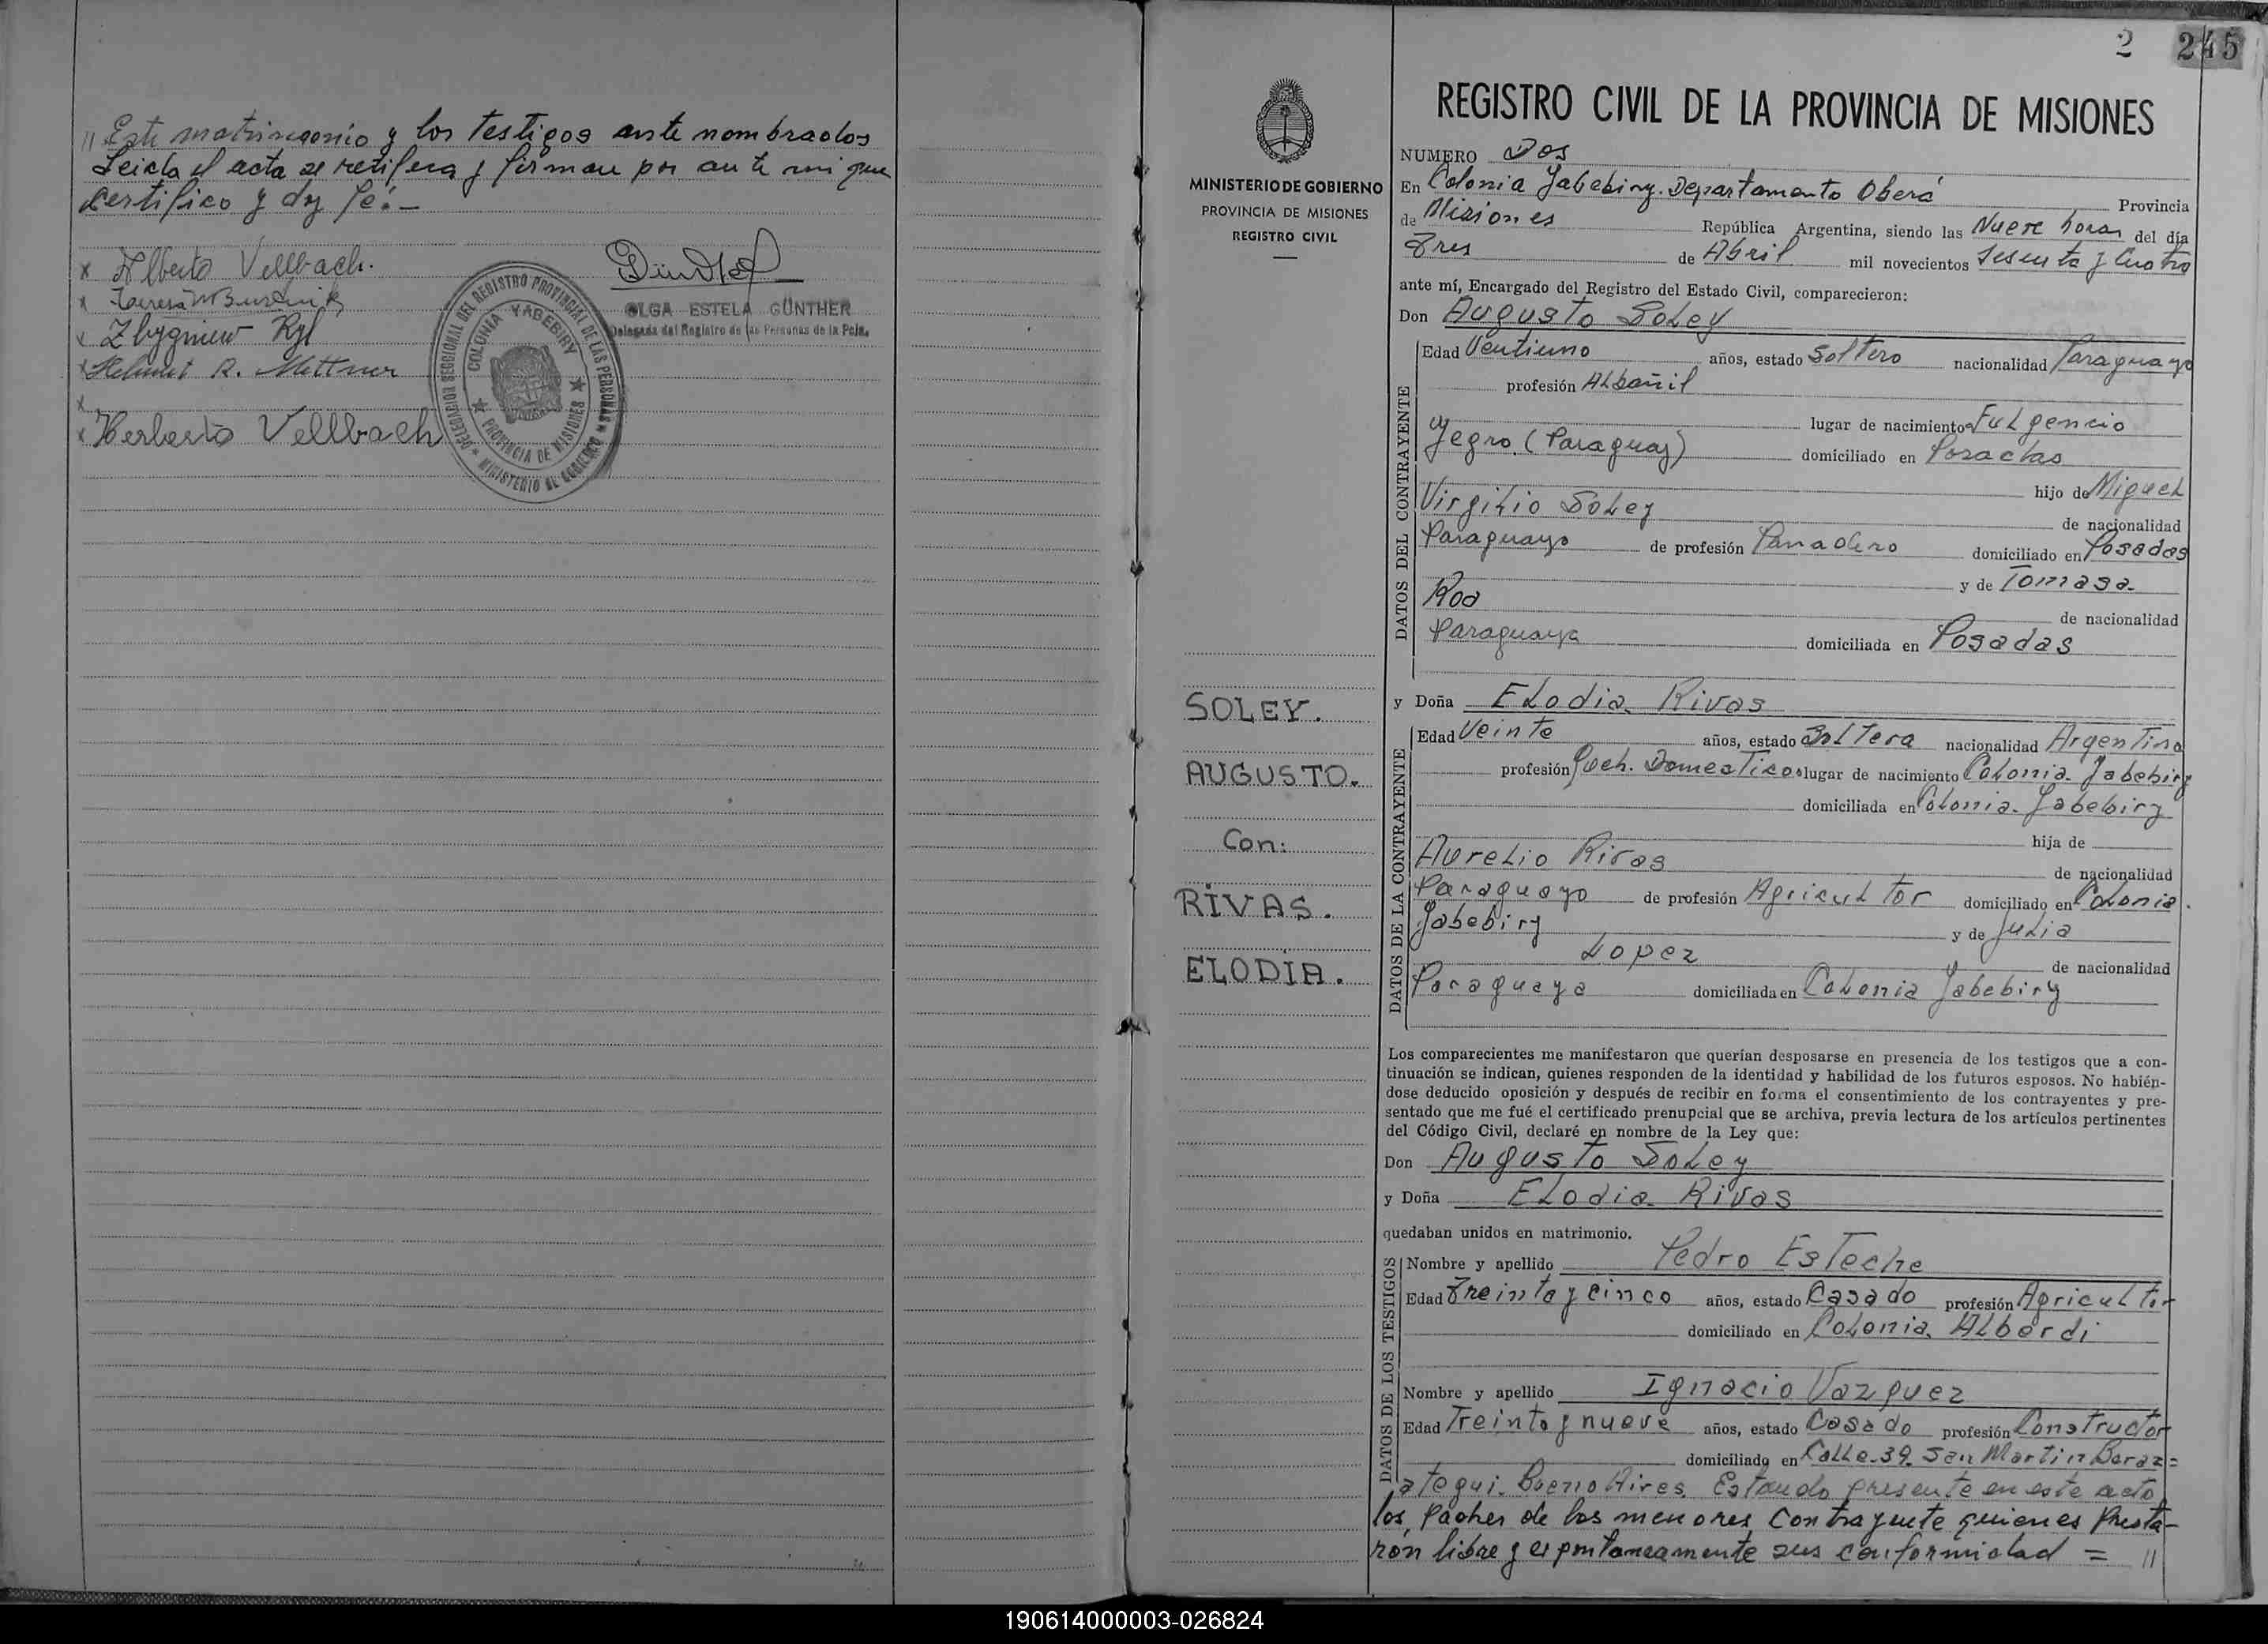 " Este matrimonio y los testigos ante nombrados
Leida el acta se retifica y firman por ante mi que
certifico y doy fé.-
x Alberto Vellbach.
x
x Zbygniew Ryl
x Helmut R. Mettner
x
x Herberto Vellbach
OLGA ESTELA GÜNTHER
Delegada del Registro de las Personas de la Pcia.
DELEGACION SECCIONAL DEL REGISTRO PROVINCIAL DE LAS PERSONAS
COLONIA YABEBIRY
PROVINCIA DE MISIONES
MINISTERIO DE GOBIERNO
2 245
MINISTERIO DE GOBIERNO
PROVINCIA DE MISIONES
REGISTRO CIVIL
SOLEY.
AUGUSTO.
Con:
RIVAS.
ELODIA.
REGISTRO CIVIL DE LA PROVINCIA DE MISIONES
NUMERO Dos
En Colonia Yabebiry. Departamento Oberá Provincia
de Misiones República Argentina, siendo las Nueve horas del día
Tres de Abril mil novecientos Sesenta y Cuatro
ante mí, Encargado del Registro del Estado Civil, comparecieron:
Don Augusto Soley
DATOS DEL CONTRAYENTE
Edad Ventiuno años, estado Soltero nacionalidad Paraguayo
profesión Albañil
lugar de nacimiento Fulgencio
Yegro. (Paraguay) domiciliado en Posadas
hijo de Miguel
Virgilio Soley de nacionalidad
Paraguayo de profesión Panadero domiciliado en Posadas
y de Tomasa.
Roa de nacionalidad
Paraguaya domiciliada en Posadas
y Doña Elodia Rivas
DATOS DE LA CONTRAYENTE
Edad Veinte años, estado Soltera nacionalidad Argentina
profesión Queh. Domesticos lugar de nacimiento Colonia Yabebiry
domiciliada en Colonia Yabebiry
hija de
Aurelio Rivas de nacionalidad
Paraguayo de profesión Agricultor domiciliado en Colonia
Yabebiry y de Julia
Lopez de nacionalidad
Paraguaya domiciliada en Colonia Yabebiry
Los comparecientes me manifestaron que querían desposarse en presencia de los testigos que a con-
tinuación se indican, quienes responden de la identidad y habilidad de los futuros esposos. No habién-
dose deducido oposición y después de recibir en forma el consentimiento de los contrayentes y pre-
sentado que me fué el certificado prenupcial que se archiva, previa lectura de los artículos pertinentes
del Código Civil, declaré en nombre de la Ley que:
Don Augusto Soley
y Doña Elodia Rivas
quedaban unidos en matrimonio.
DATOS DE LOS TESTIGOS
Nombre y apellido Pedro Esteche
Edad Treinta y cinco años, estado Casado profesión Agricultor
domiciliado en Colonia Alberdi
Nombre y apellido Ignacio Vazquez
Edad Treinta y nueve años, estado Casado profesión Constructor
domiciliado en Calle.39. San Martin Baraz=
ategui. Bueno Aires. Estando presente en este acto
los Padres de los menores Contrayente quienes Presta-
ron libre y espontaneamente sus conformidad = "
190614000003-026824